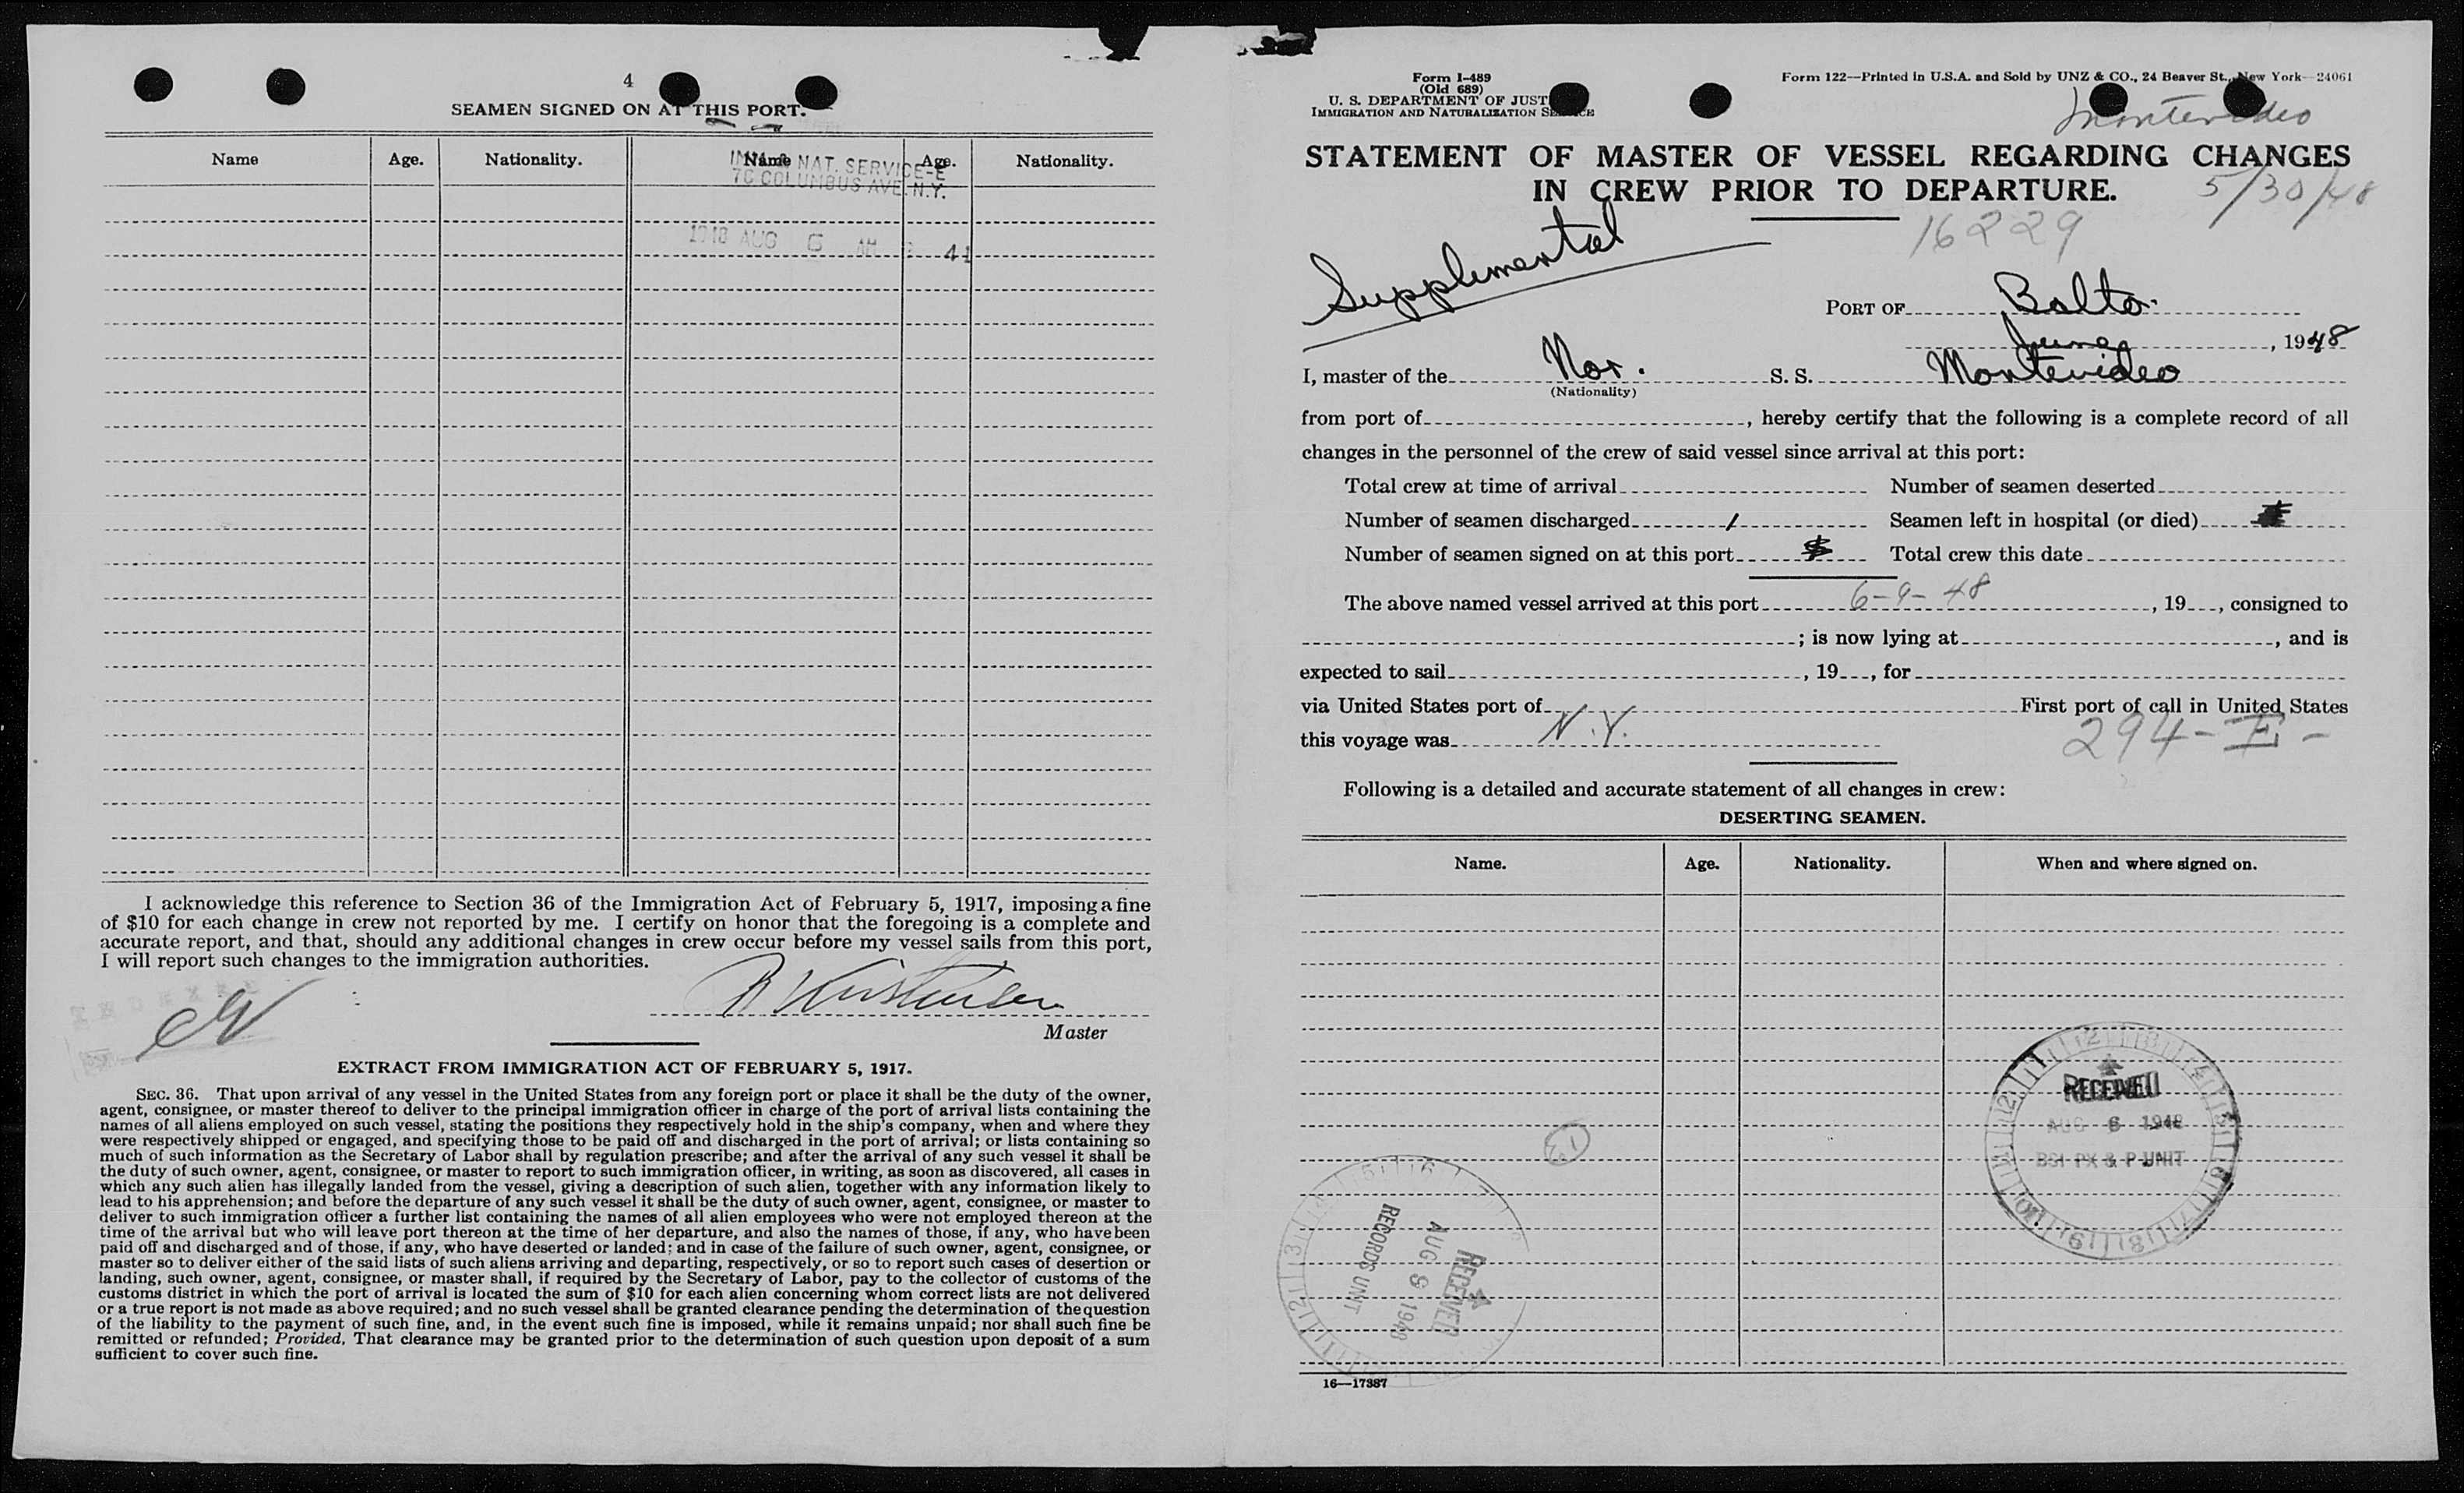 4
SEAMEN SIGNED ON AT THIS PORT.
Name Age. Nationality. Name Age. Nationality.
NAT. SERVICE-E
70 COLUMBUS AVE. N.Y.
AUG 6 AM 41
I acknowledge this reference to Section 36 of the Immigration Act of February 5, 1917, imposing a fine
of $10 for each change in crew not reported by me. I certify on honor that the foregoing is a complete and
accurate report, and that, should any additional changes in crew occur before my vessel sails from this port,
I will report such changes to the immigration authorities.
Master
EXTRACT FROM IMMIGRATION ACT OF FEBRUARY 5, 1917.
SEC. 36. That upon arrival of any vessel in the United States from any foreign port or place it shall be the duty of the owner,
agent, consignee, or master thereof to deliver to the principal immigration officer in charge of the port of arrival lists containing the
names of all aliens employed on such vessel, stating the positions they respectively hold in the ship's company, when and where they
were respectively shipped or engaged, and specifying those to be paid off and discharged in the port of arrival; or lists containing so
much of such information as the Secretary of Labor shall by regulation prescribe; and after the arrival of any such vessel it shall be
the duty of such owner, agent, consignee, or master to report to such immigration officer, in writing, as soon as discovered, all cases in
which any such alien has illegally landed from the vessel, giving a description of such alien, together with any information likely to
lead to his apprehension; and before the departure of any such vessel it shall be the duty of such owner, agent, consignee, or master to
deliver to such immigration officer a further list containing the names of all alien employees who were not employed thereon at the
time of the arrival but who will leave port thereon at the time of her departure, and also the names of those, if any, who have been
paid off and discharged and of those, if any, who have deserted or landed; and in case of the failure of such owner, agent, consignee, or
master so to deliver either of the said lists of such aliens arriving and departing, respectively, or so to report such cases of desertion or
landing, such owner, agent, consignee, or master shall, if required by the Secretary of Labor, pay to the collector of customs of the
customs district in which the port of arrival is located the sum of $10 for each alien concerning whom correct lists are not delivered
or a true report is not made as above required; and no such vessel shall be granted clearance pending the determination of the question
of the liability to the payment of such fine, and, in the event such fine is imposed, while it remains unpaid; nor shall such fine be
remitted or refunded; Provided, That clearance may be granted prior to the determination of such question upon deposit of a sum
sufficient to cover such fine.
Form I-489
(Old 689)
U. S. DEPARTMENT OF JUST
IMMIGRATION AND NATURALIZATION SERVICE
Form 122—Printed in U.S.A. and Sold by UNZ & CO., 24 Beaver St., New York—24061
Montevideo
STATEMENT OF MASTER OF VESSEL REGARDING CHANGES
IN CREW PRIOR TO DEPARTURE.
5/30/48
16229
Supplemental
PORT OF Balto.
June, 1948
I, master of the Nor. S. S. Montevideo
(Nationality)
from port of , hereby certify that the following is a complete record of all
changes in the personnel of the crew of said vessel since arrival at this port:
Total crew at time of arrival Number of seamen deserted
Number of seamen discharged 1 Seamen left in hospital (or died)
Number of seamen signed on at this port Total crew this date
The above named vessel arrived at this port 6-9-48, 19 , consigned to
; is now lying at , and is
expected to sail , 19 , for
via United States port of First port of call in United States
this voyage was N.Y.
294-E-
Following is a detailed and accurate statement of all changes in crew:
DESERTING SEAMEN.
Name. Age. Nationality. When and where signed on.
RECEIVED
AUG 6 1948
BSI PX & P UNIT
RECEIVED
AUG 9 1948
RECORDS UNIT
16—17387